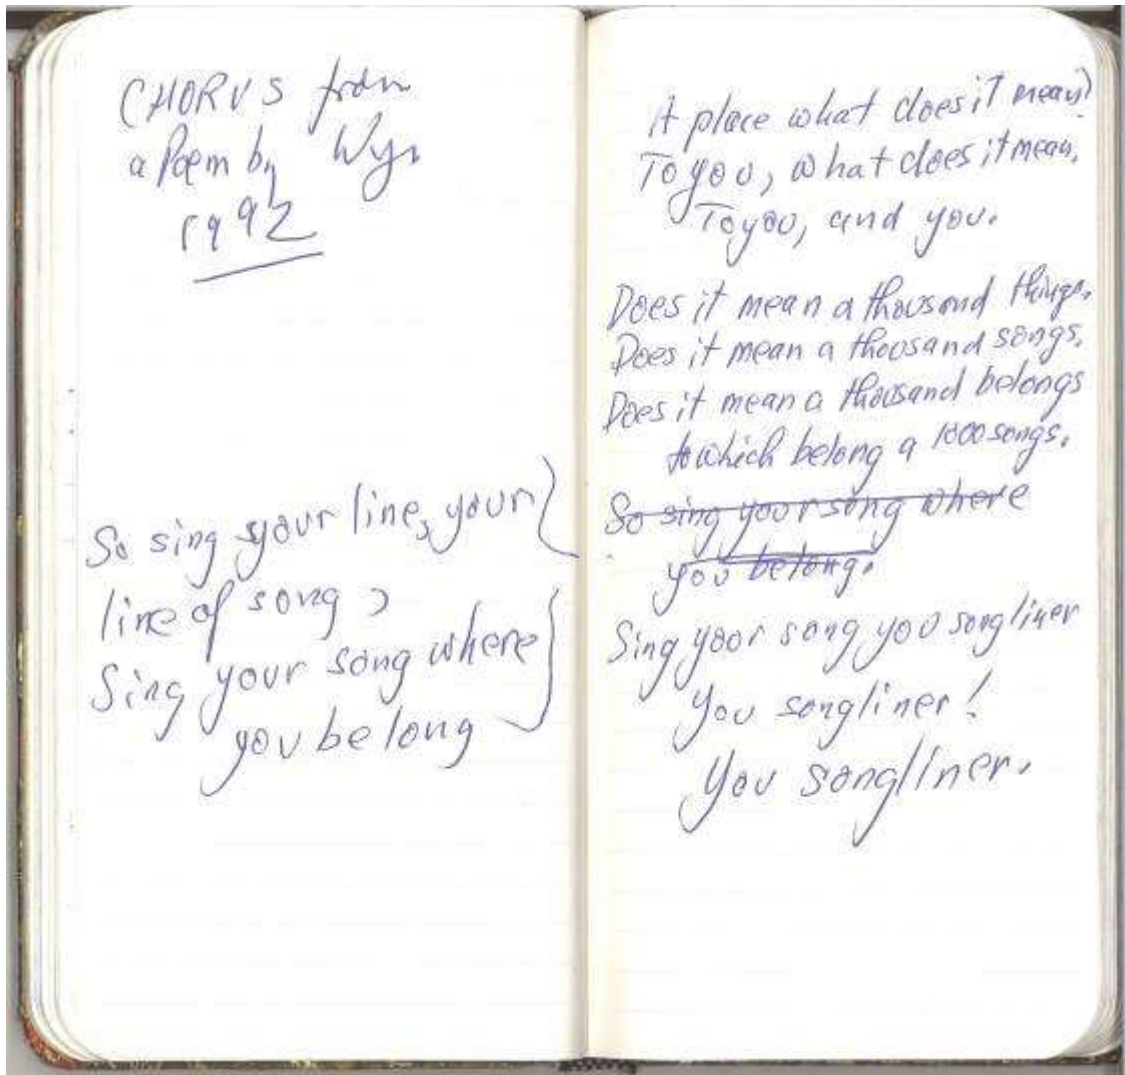 CHORUS from
a Poem by Wyn
1992
So sing your line, your
line of song,
Sing your song where
you belong
A place what does it mean?
To you, what does it mean,
To you, and you.
Does it mean a thousand things.
Does it mean a thousand songs.
Does it mean a thousand belongs
to which belong a 1000 songs.
So sing your song where
you belong.
Sing your song you songliner
You songliner!
You songliner.